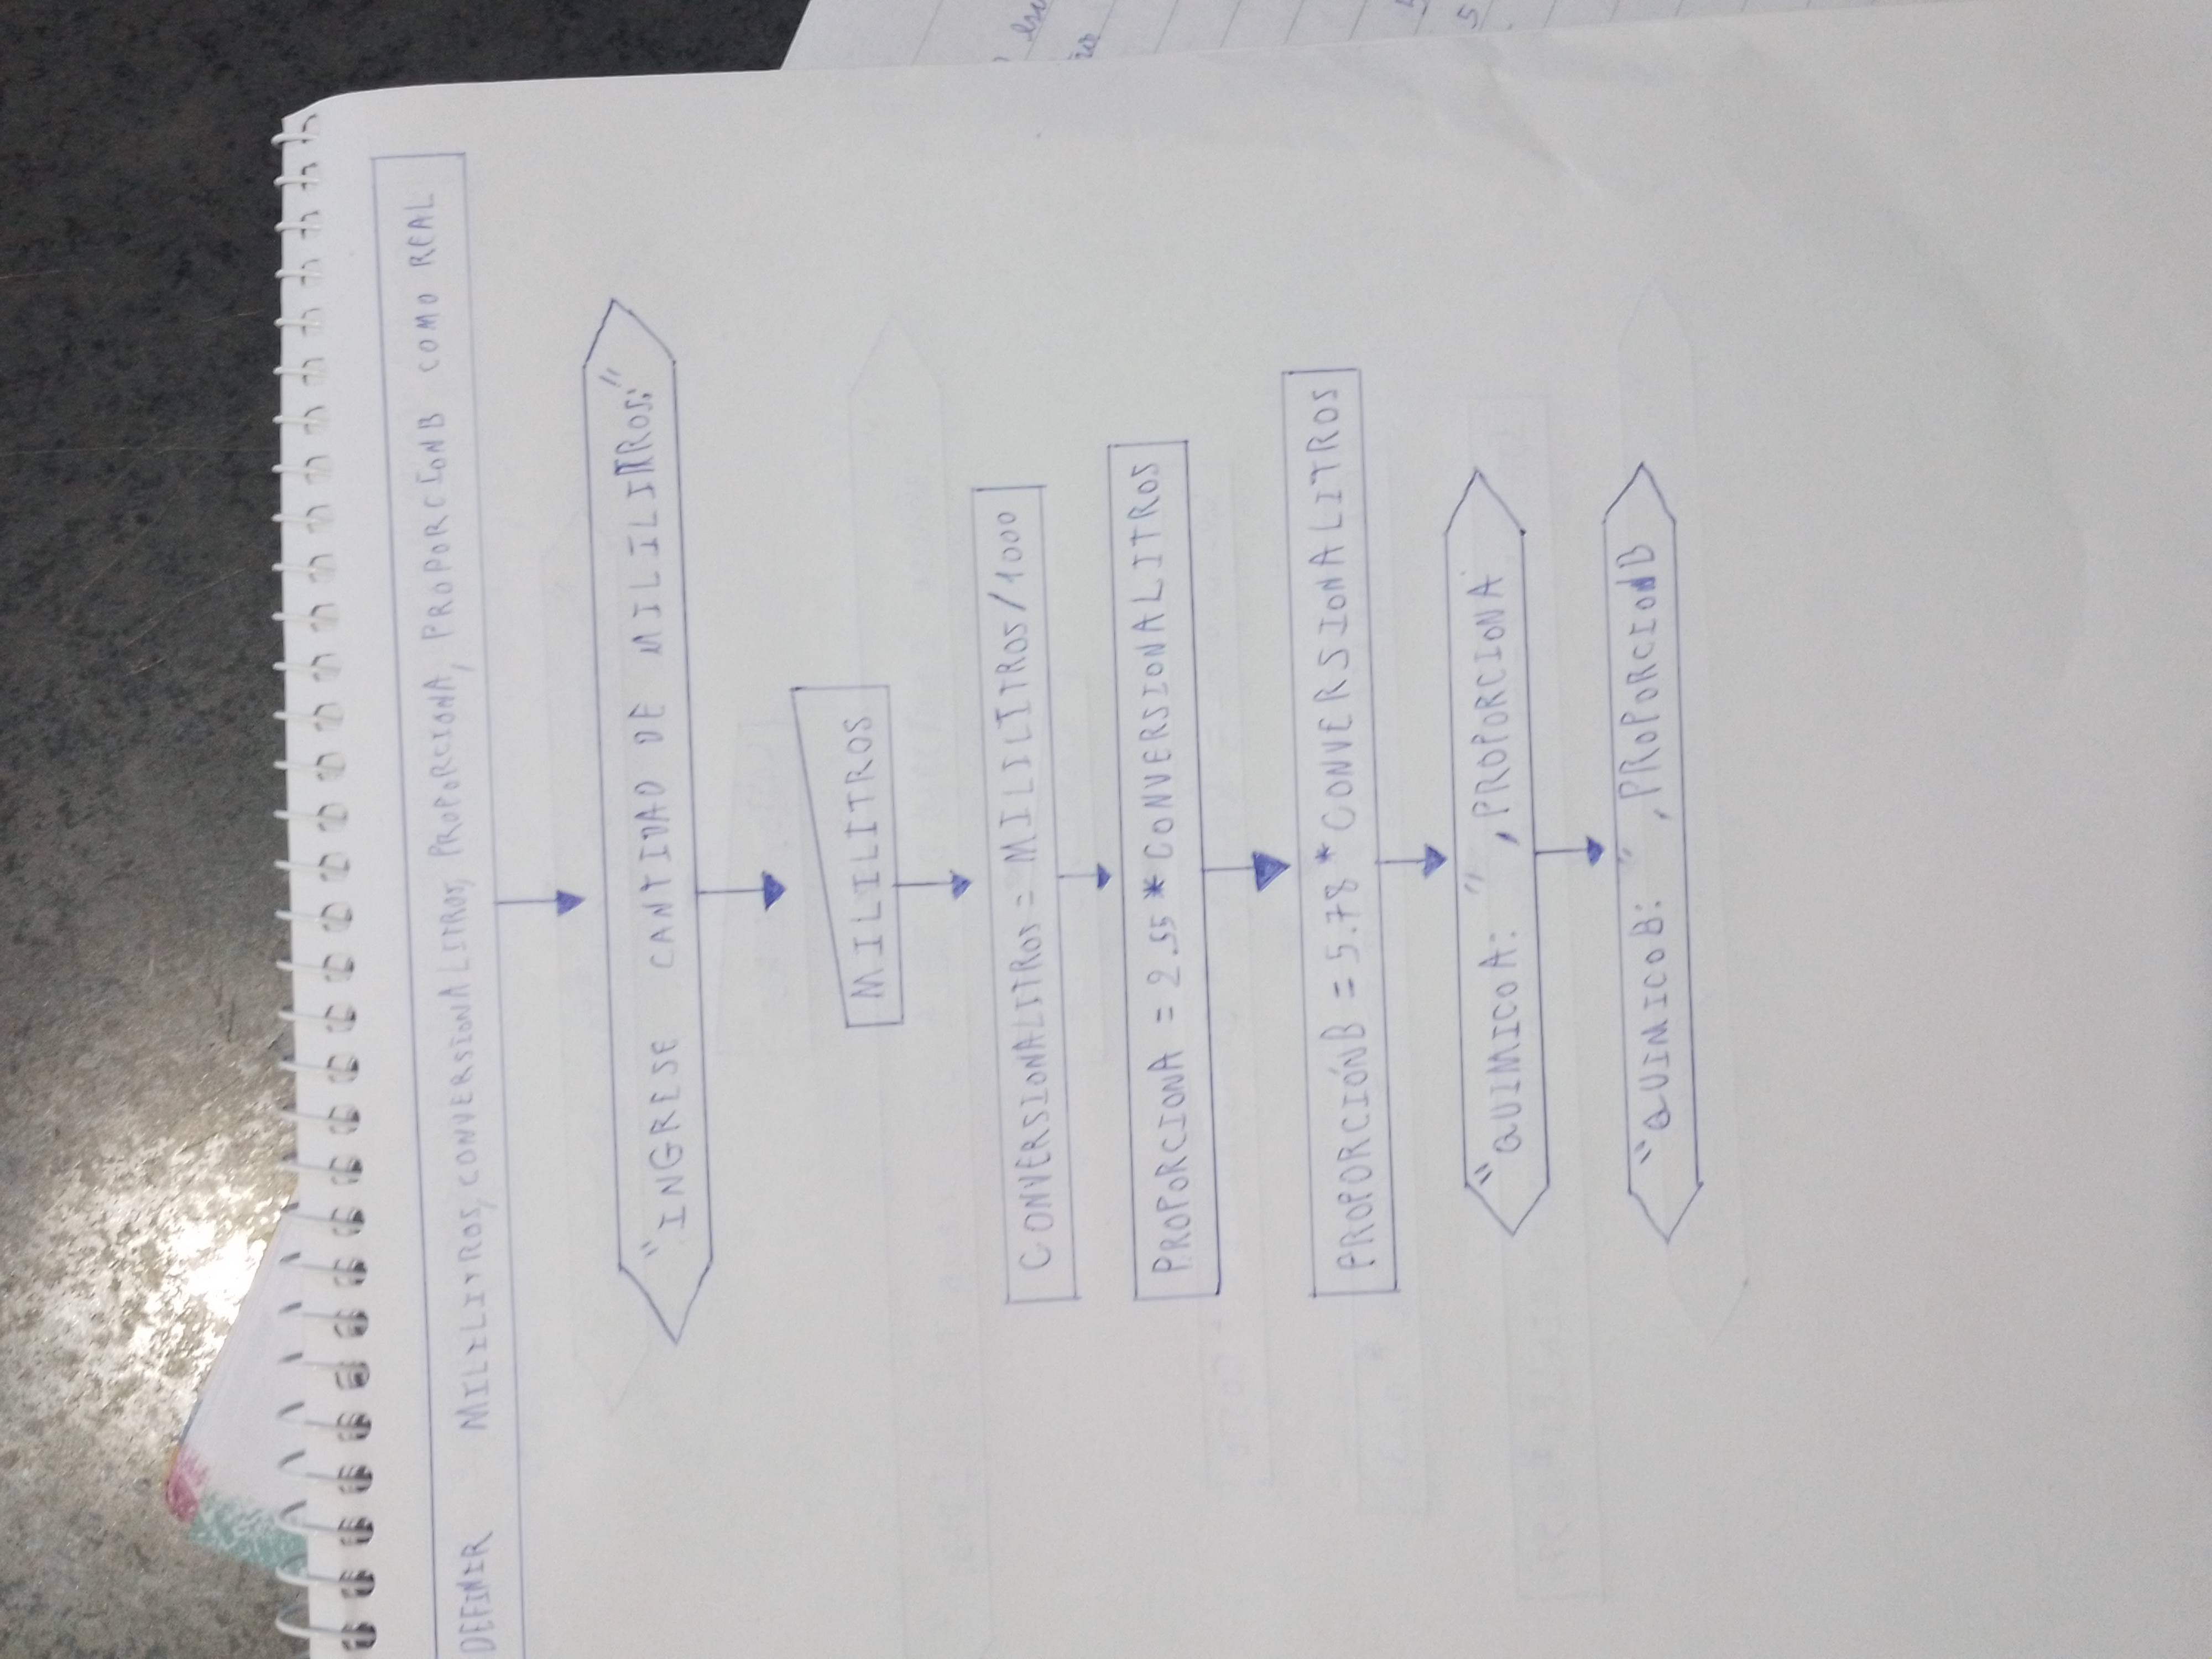 DEFINIR MILILITROS, CONVERSIONALITROS, PROPORCIONA, PROPORCIONB COMO REAL
"INGRESE CANTIDAD DE MILILITROS:"
MILILITROS
CONVERSIONALITROS = MILILITROS/1000
PROPORCIONA = 2.55 * CONVERSIONALITROS
PROPORCIÓNB = 5.78 * CONVERSIONALITROS
"QUIMICOA: ", PROPORCIONA
"QUIMICOB: ", PROPORCIONB